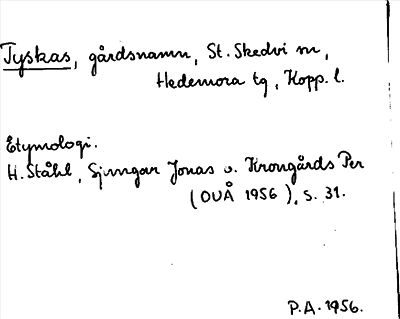 Tyskas, gårdsnamn, St. Skedvi sn,
Hedemora tg, Kopp. l.
Etymologi.
H. Ståhl, Sjungar Jonas o. Krongårds Per
(OUÅ 1956), s. 31.
P.A. 1956.